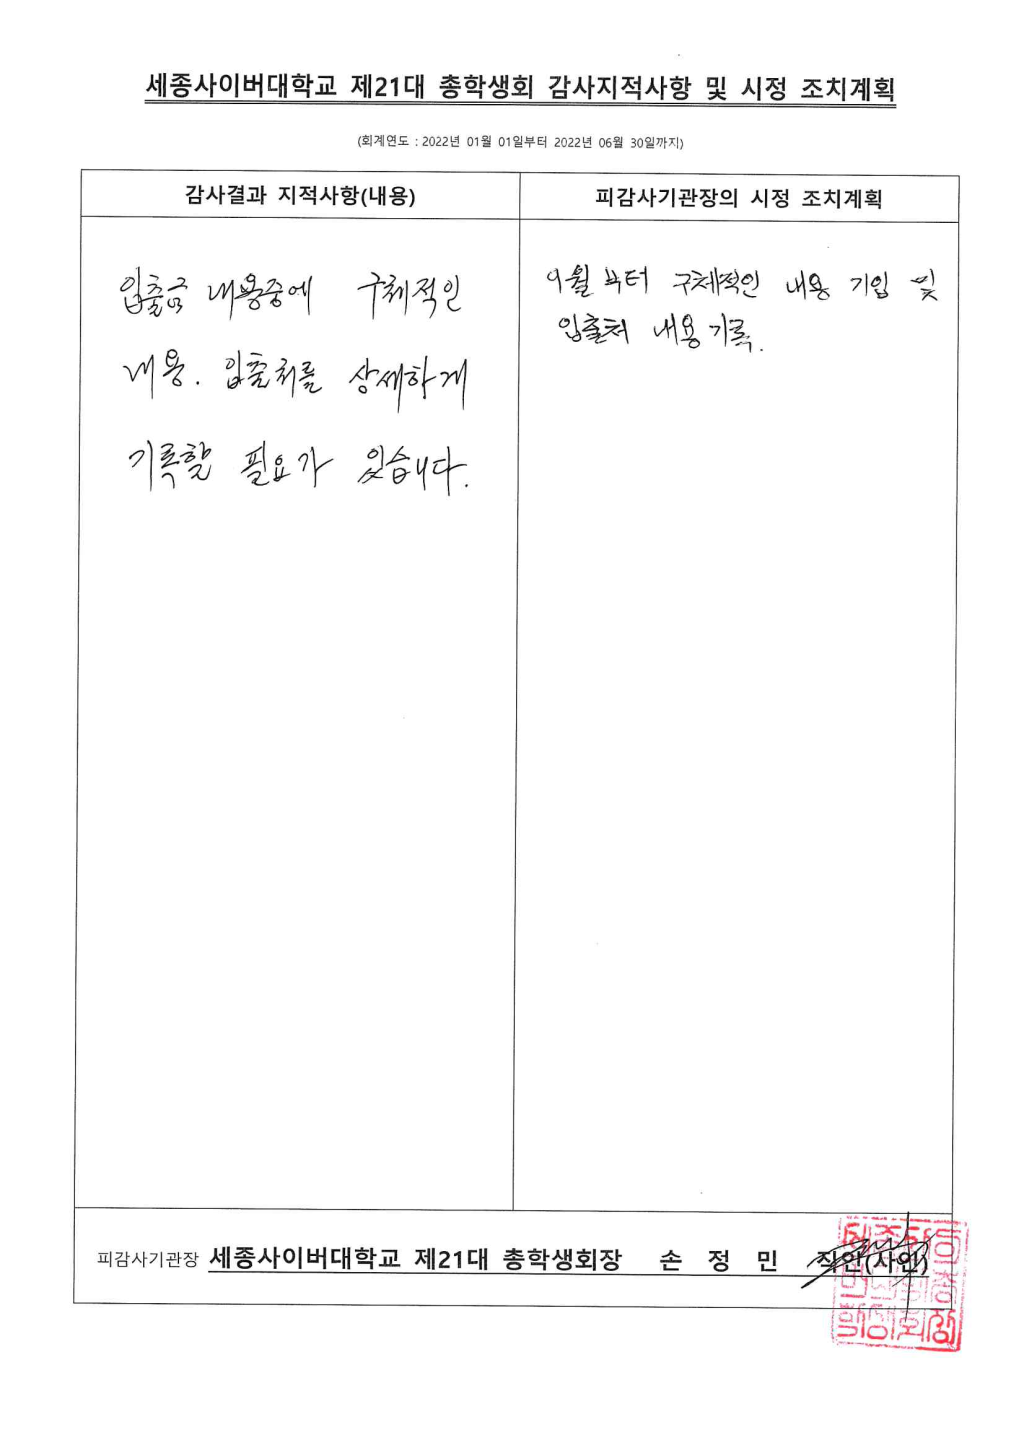 세종사이버대학교 제21대 총학생회 감사지적사항 및 시정 조치계획
(회계연도 : 2022년 01월 01일부터 2022년 06월 30일까지)
감사결과 지적사항(내용)
피감사기관장의 시정 조치계획
입출금 내용중에 구체적인
내용. 입출처를 상세하게
기록할 필요가 있습니다.
9월부터 구체적인 내용 기입 및
입출처 내용 기록.
피감사기관장 세종사이버대학교 제21대 총학생회장 손 정 민 직인(사인)